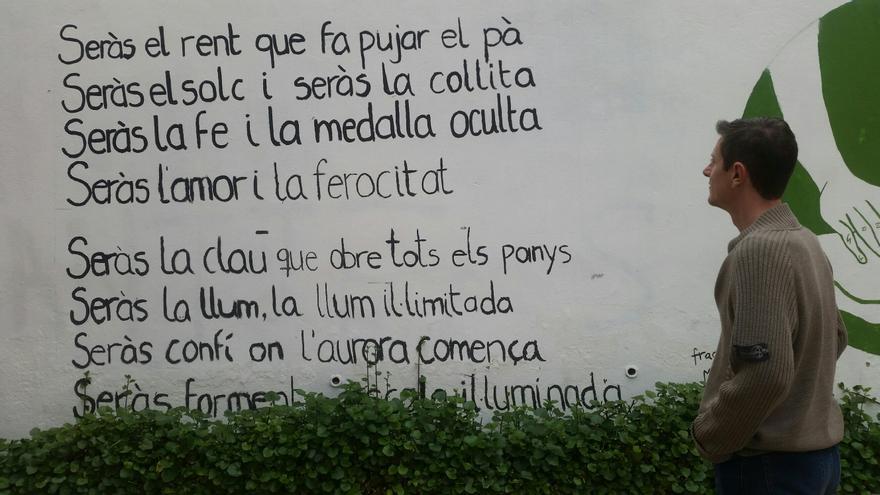 Seràs el rent que fa pujar el pà
Seràs el solc i seràs la collita
Seràs la fe i la medalla oculta
Seràs l'amor i la ferocitat
Seràs la claū que obre tots els panys
Seràs la llum, la llum il·limitada
Seràs confí on l'aurora comença
Seràs forment il·luminada
frag